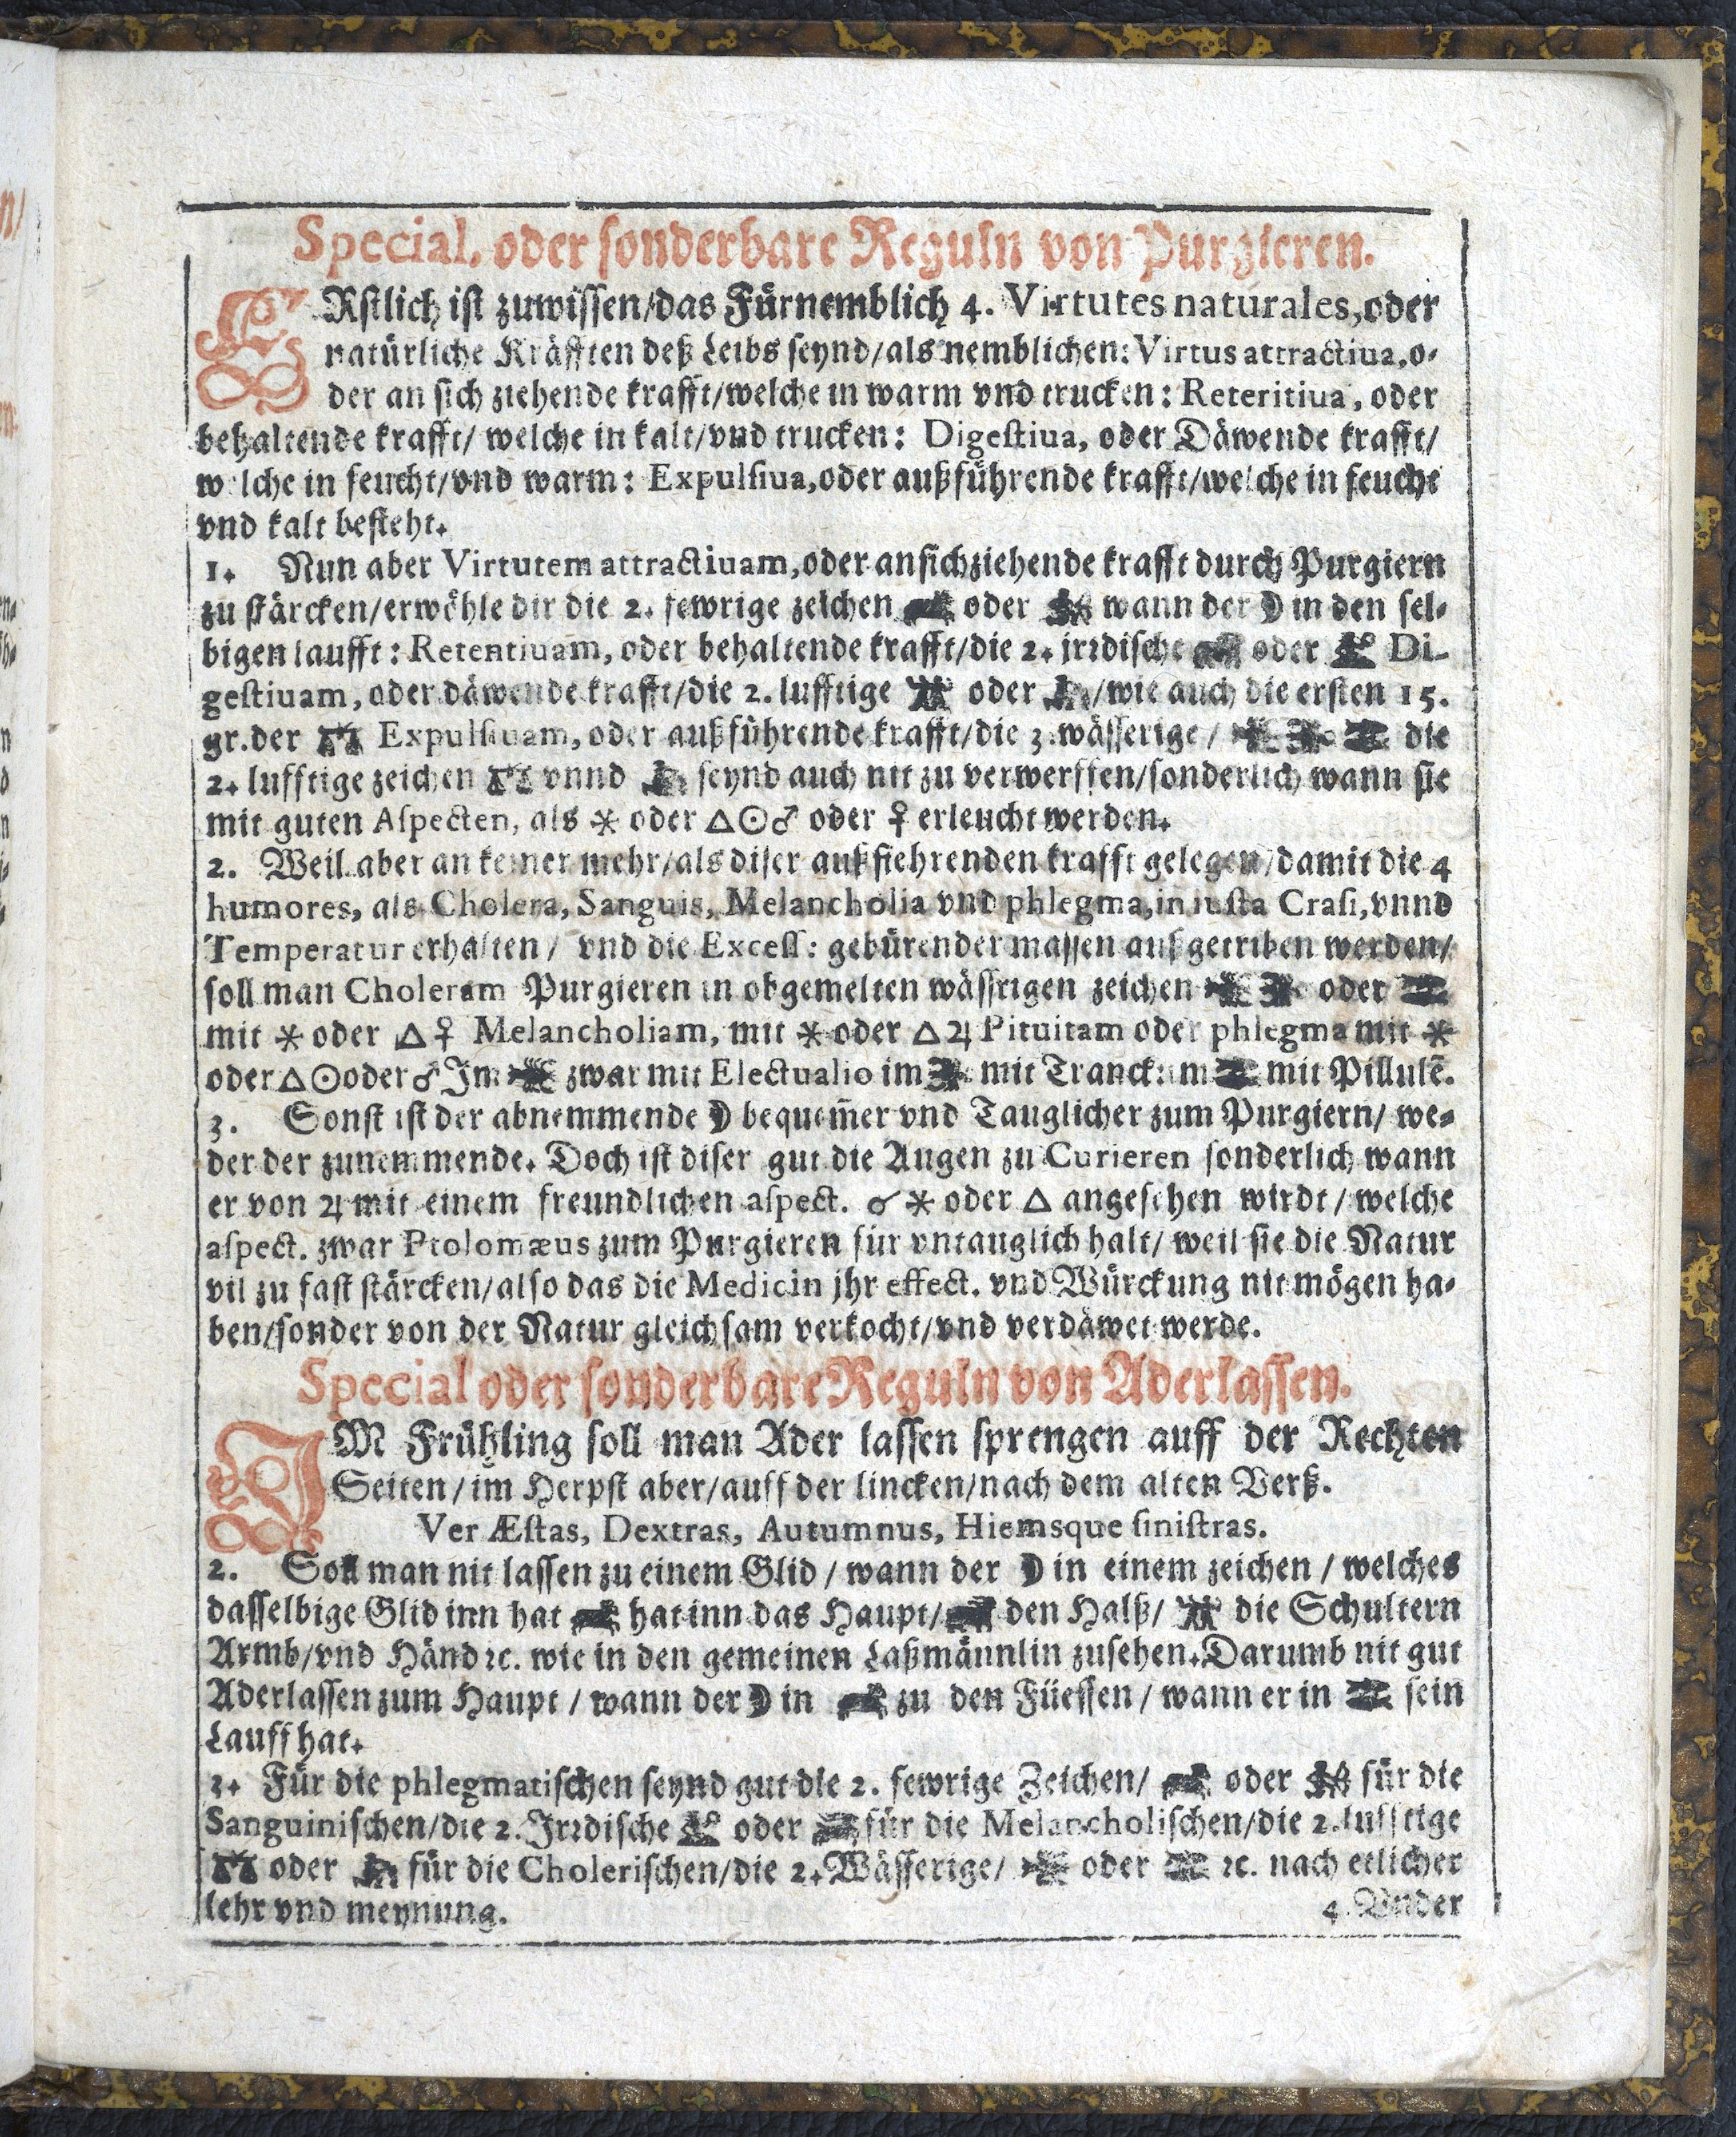 Special. oder sonderbare Reguln von Purgieren.
ERstlich ist zuwissen/das Fürnemblich 4. Virtutes naturales, oder
natürliche Kräfften deß Leibs seynd/als nemblichen: Virtus attractiua, o-
der an sich ziehende krafft/welche in warm vnd trucken: Reteritiua, oder
behaltende krafft/ welche in kalt/vnd trucken: Digestiua, oder Däwende krafft/
welche in feucht/vnd warm: Expulsiua, oder außführende krafft/welche in feucht
vnd kalt besteht.
1. Nun aber Virtutem attractiuam, oder ansichziehende krafft durch Purgiern
zu stärcken/erwöhle dir die 2. fewrige zeichen ♈ oder ♐ wann der ☽ in den sel-
bigen laufft: Retentiuam, oder behaltende krafft/die 2. jrrdische ♉ oder ♍ Di-
gestiuam, oder däwende krafft/die 2. lufftige ♊ oder ♒/wie auch die ersten 15.
gr. der ♎ Expulsiuam, oder außführende krafft/die 3. wässerige/ ♋ ♏ ♓ die
2. lufftige zeichen ♎ vnnd ♒ seynd auch nit zu verwerffen/sonderlich wann sie
mit guten Aspecten, als ⚹ oder △☉♂ oder ♀ erleucht werden.
2. Weil aber an keiner mehr/als diser außfiehrenden krafft gelegen/damit die 4
humores, als Cholera, Sanguis, Melancholia vnd phlegma, in iusta Crasi, vnnd
Temperatur erhalten/ vnd die Excess: gebürender massen außgetriben werden/
soll man Choleram Purgieren in obgemelten wässrigen zeichen ♋ ♏ oder ♓
mit ⚹ oder △♀ Melancholiam, mit ⚹ oder △♃ Pituitam oder phlegma mit ⚹
oder △☉ oder ♂ Im ♋ zwar mit Electualio im ♏ mit Tranck im ♓ mit Pillulē.
3. Sonst ist der abnemmende ☽ bequem̄er vnd Tauglicher zum Purgiern/ we-
der der zunemmende. Doch ist diser gut die Augen zu Curieren sonderlich wann
er von ♃ mit einem freundlichen aspect. ☌ ⚹ oder △ angesehen wirdt/ welche
aspect. zwar Ptolomæus zum Purgieren für vntauglich halt/ weil sie die Natur
vil zu fast stärcken/also das die Medicin jhr effect. vnd Würckung nit mögen ha-
ben/sonder von der Natur gleichsam verkocht/vnd verdäwet werde.
Special oder sonderbare Reguln von Aderlassen.
IM Frühling soll man Ader lassen sprengen auff der Rechten
Seiten/im Herpst aber/auff der lincken/nach dem alten Verß.
Ver Æstas, Dextras, Autumnus, Hiemsque sinistras.
2. Soll man nit lassen zu einem Glid/ wann der ☽ in einem zeichen/ welches
dasselbige Glid inn hat ♈ hat inn das Haupt/ ♉ den Halß/ ♊ die Schultern
Armb/vnd Händ ꝛc. wie in den gemeinen Laßmännlin zusehen. Darumb nit gut
Aderlassen zum Haupt/ wann der ☽ in ♈ zu den Füessen/ wann er in ♓ sein
Lauff hat.
3. Für die phlegmatischen seynd gut die 2. fewrige Zeichen/ ♈ oder ♐ für die
Sanguinischen/die 2. Jrrdische ♍ oder ♑ für die Melancholischen/die 2. lufftige
♎ oder ♒ für die Cholerischen/die 2. Wässerige/ ♋ oder ♓ ꝛc. nach etlicher
lehr vnd meynung. 4. Vnder